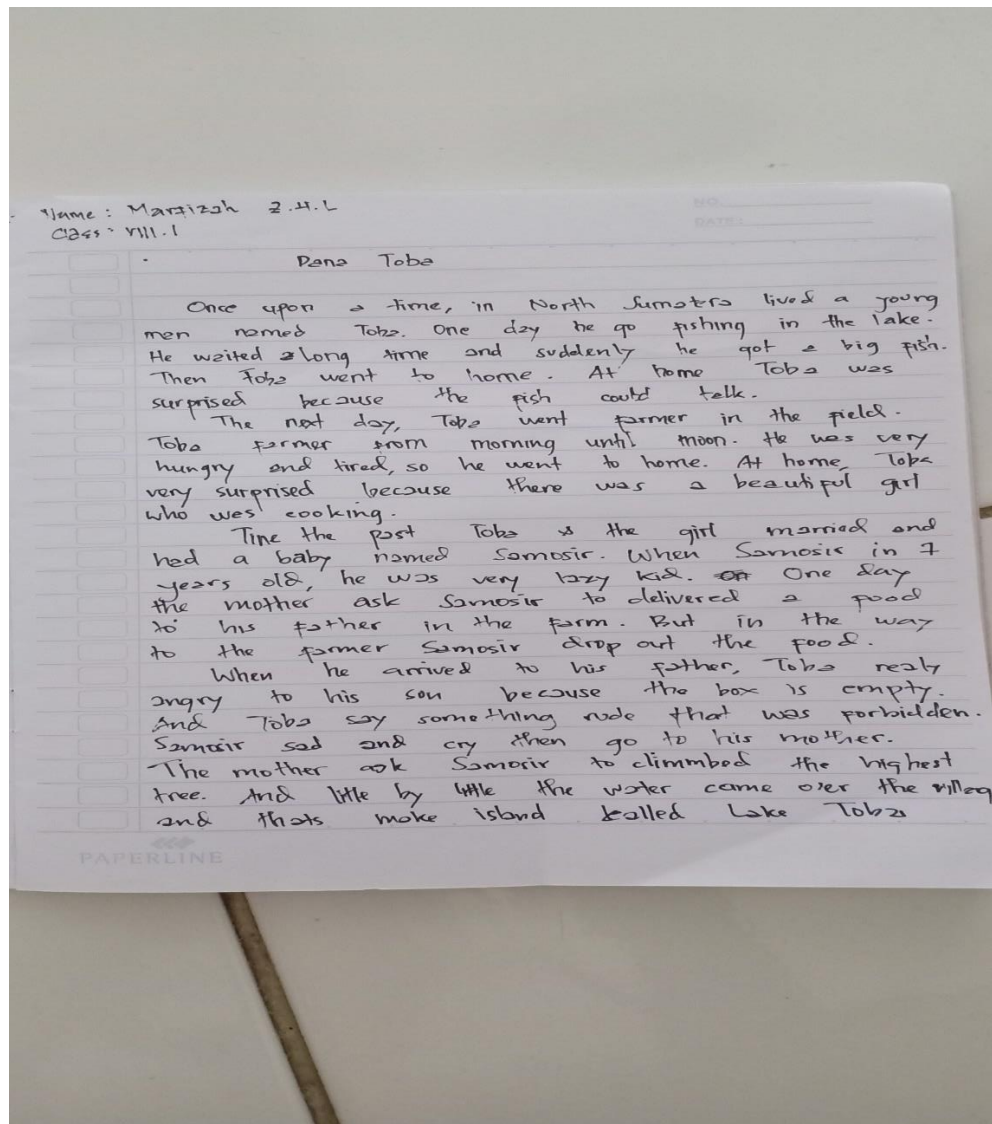 Name : Marfizah Z.H.L
Class : VIII.1
NO
DATE :
Dana Toba
Once upon a time, in North Sumatera lived a young
men named Toba. One day he go fishing in the lake.
He waited a long time and suddenly he got a big fish.
Then Toba went to home. At home Toba was
surprised because the fish could talk.
The next day, Toba went farmer in the field.
Toba farmer from morning until moon. He was very
hungry and tired, so he went to home. At home, Toba
very surprised because there was a beautiful girl
who was cooking.
Tine the past Toba & the girl married and
had a baby named Samosir. When Samosir in 7
years old, he was very lazy kid. One day
the mother ask Samosir to delivered a food
to his father in the farm. But in the way
to the farmer Samosir drop out the food.
When he arrived to his father, Toba realy
angry to his son because the box is empty.
And Toba say something rude that was forbidden.
Samosir sad and cry then go to his mother.
The mother ask Samosir to climmbed the highest
tree. And little by little the water came over the villag
and thats make island kalled Lake Toba
PAPERLINE